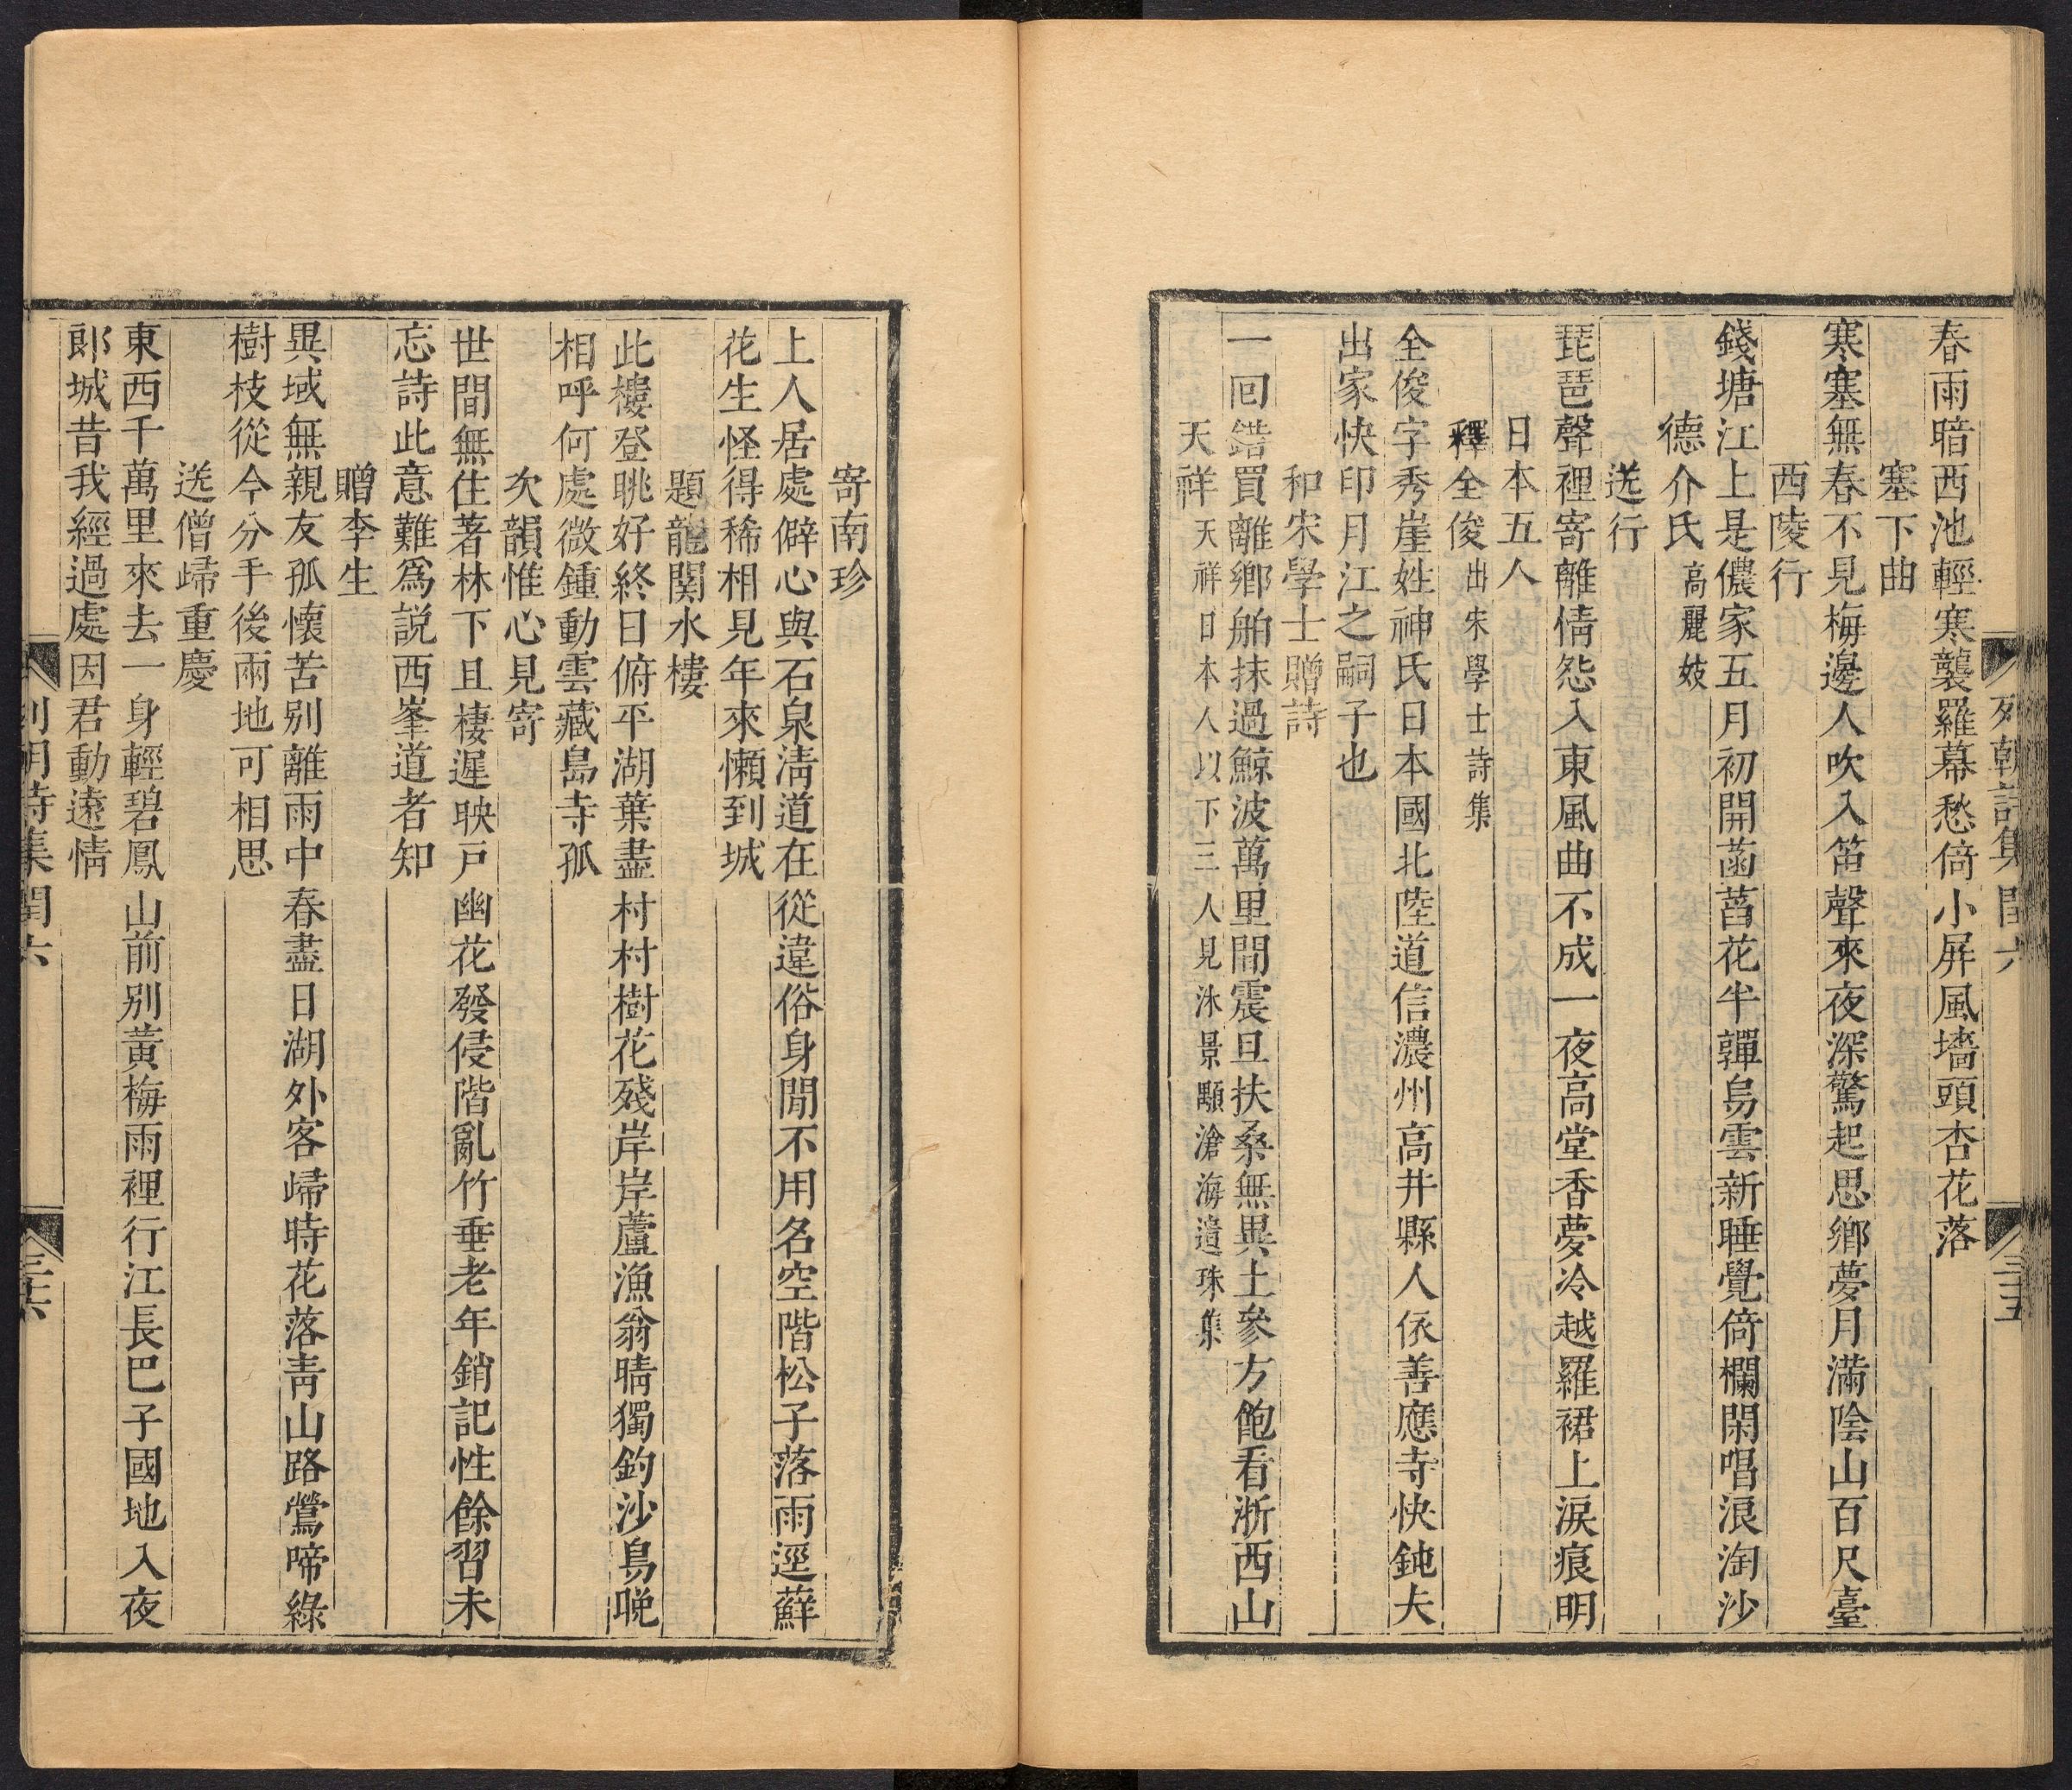 春雨暗西池輕寒襲羅幕愁倚小屛風墻頭杏花落
塞下曲
寒塞無春不見梅邊人吹入笛聲來夜深驚起思鄉夢月滿陰山百尺臺
西陵行
錢塘江上是儂家五月初開菡萏花半嚲烏雲新睡覺倚欄閑唱浪淘沙
德介氏高麗妓
送行
琵琶聲裡寄離情怨入東風曲不成一夜高堂香夢冷越羅裙上淚痕明
日本五人
釋全俊出宋學士詩集
全俊字秀崖姓神氏日本國北陸道信濃州高井縣人依善應寺快鈍夫
出家快印月江之嗣子也
和宋學士贈詩
一回錯買離鄉舶抹過鯨波萬里間震旦扶桑無異土參方飽看浙西山
天祥天祥日本人以下三人見沐景顒滄海遺珠集
列朝詩集閏六
三五
寄南珍
上人居處僻心與石泉淸道在從違俗身閒不用名空階松子落雨逕蘚
花生怪得稀相見年來懶到城
題龍関水樓
此樓登眺好終日俯平湖葉盡村村樹花殘岸岸蘆漁翁晴獨釣沙鳥晚
相呼何處微鍾動雲藏島寺孤
次韻惟心見寄
世間無住著林下且棲遲映戸幽花發侵階亂竹垂老年銷記性餘習未
忘詩此意難爲説西峯道者知
贈李生
異域無親友孤懷苦别離雨中春盡日湖外客歸時花落靑山路鶯啼綠
樹枝從今分手後兩地可相思
送僧歸重慶
東西千萬里來去一身輕碧鳳山前别黃梅雨裡行江長巴子國地入夜
郎城昔我經過處因君動遠情
列朝詩集閏六
三六